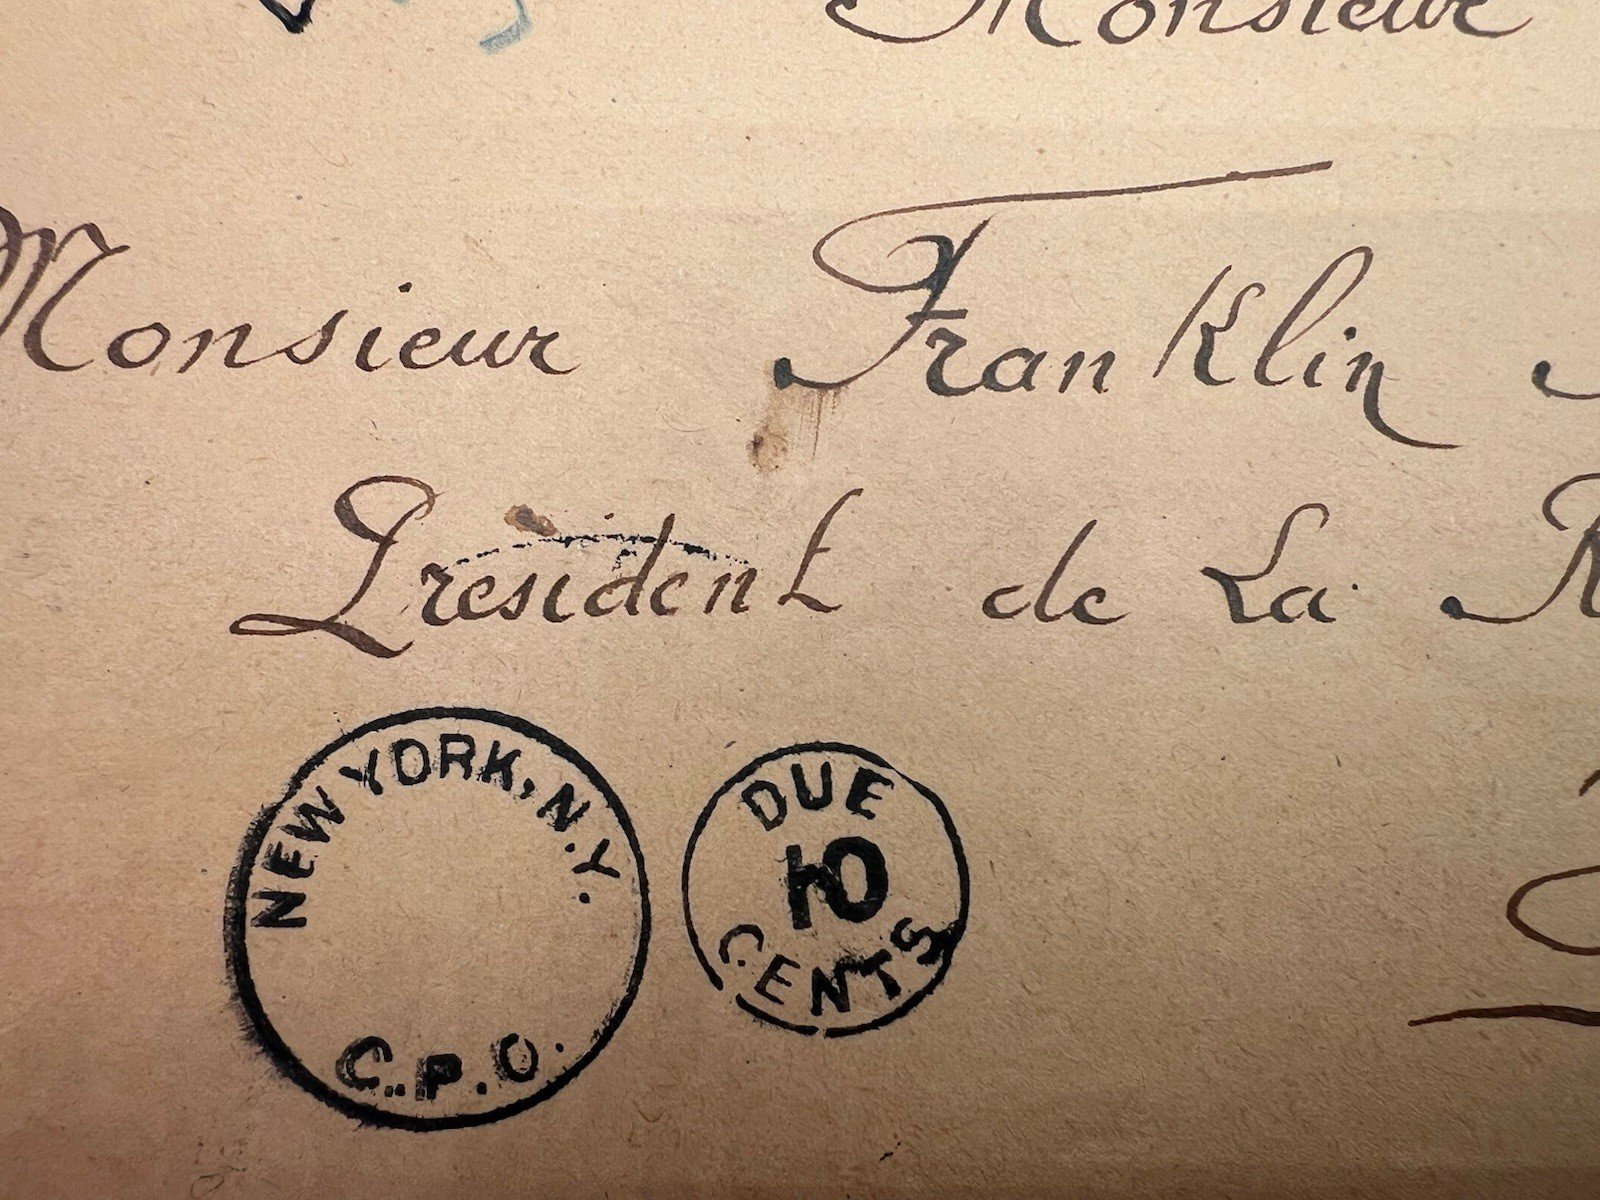 Monsieur
Monsieur Franklin
President de La
NEW YORK, N.Y.
C.P.O.
DUE
10
CENTS